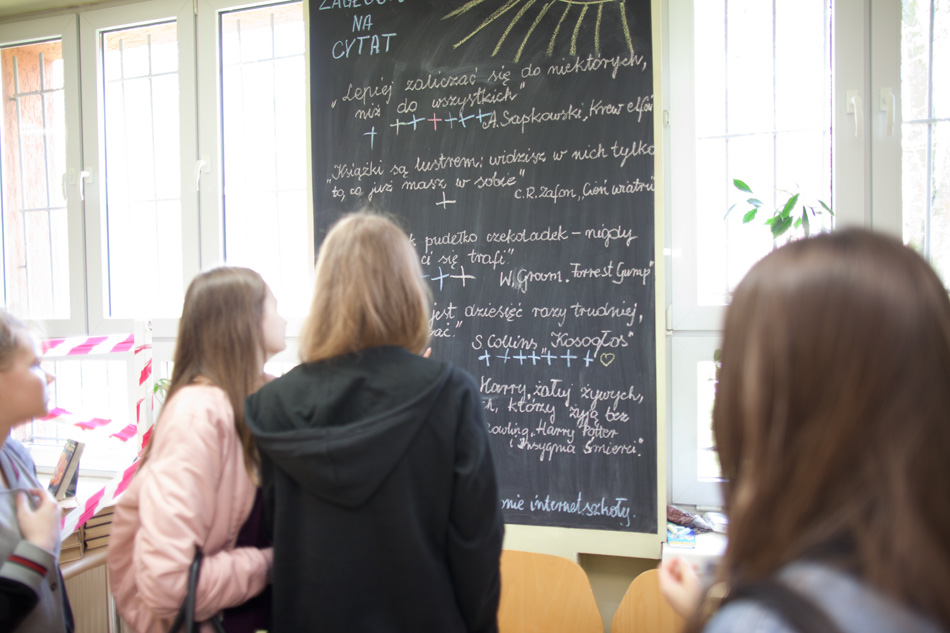 NA
CYTAT
„Lepiej zaliczać się do niektórych,
niż do wszystkich"
A. Sapkowski, Krew elfów
„Książki są lustrem: widzisz w nich tylko
to, co już masz w sobie"
C.R. Zafon, „Cień wiatru"
pudełko czekoladek – nigdy
ci się trafi"
W. Groom. „Forrest Gump"
jest dziesięć razy trudniej,
S. Collins „Kosogłos"
Harry, żałuj żywych,
którzy żyją bez
„Harry Potter
i Insygnia Śmierci".
internet szkoły.